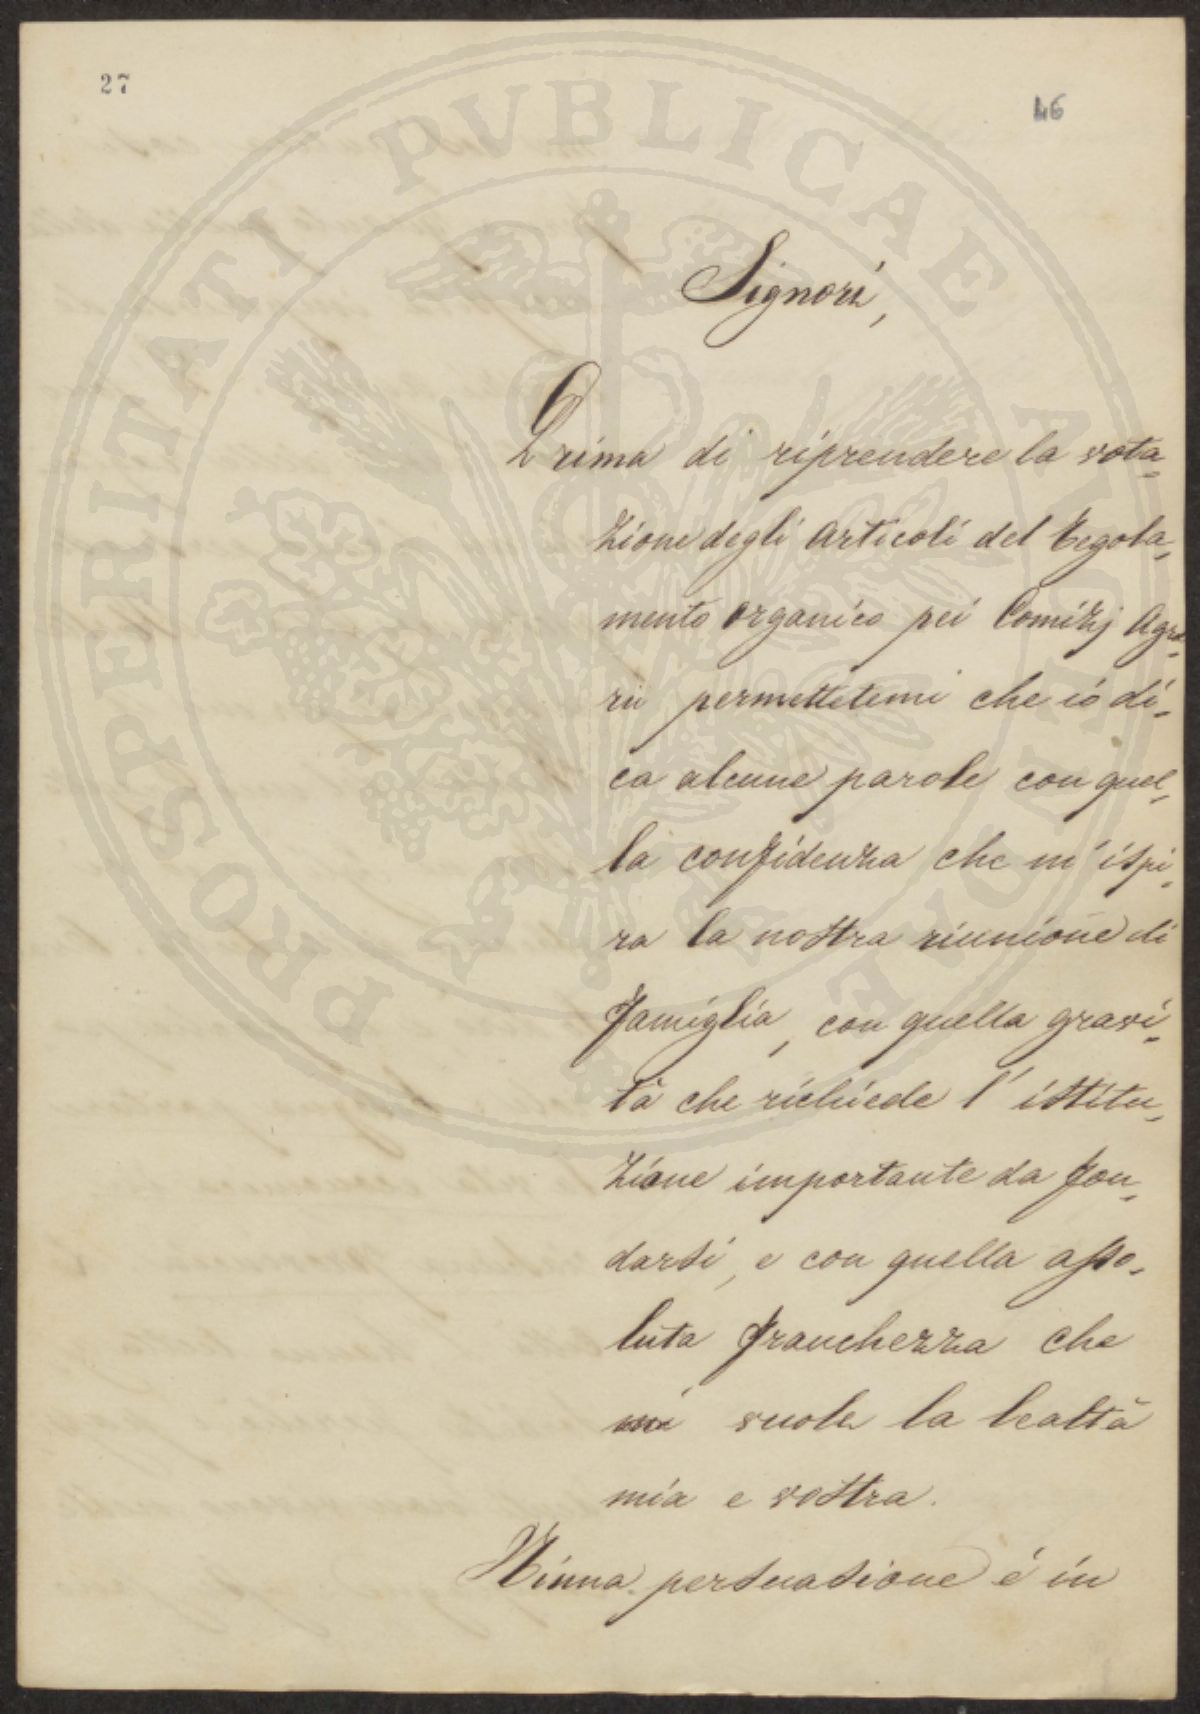 27
46
PROSPERITATI PVBLICAE AVGENDAE
Signori,
Prima di riprendere la vota-
zione degli articoli del Regola-
mento organico pei Comizj Agra-
rii permettetemi che io di-
ca alcune parole con quel-
la confidenza che m'ispi-
ra la nostra riunione di
famiglia, con quella gravi-
tà che richiede l'istitu-
zione importante da fon-
darsi, e con quella asso-
luta franchezza che
mi vuole la lealtà
mia e vostra.
Niuna persuasione è in